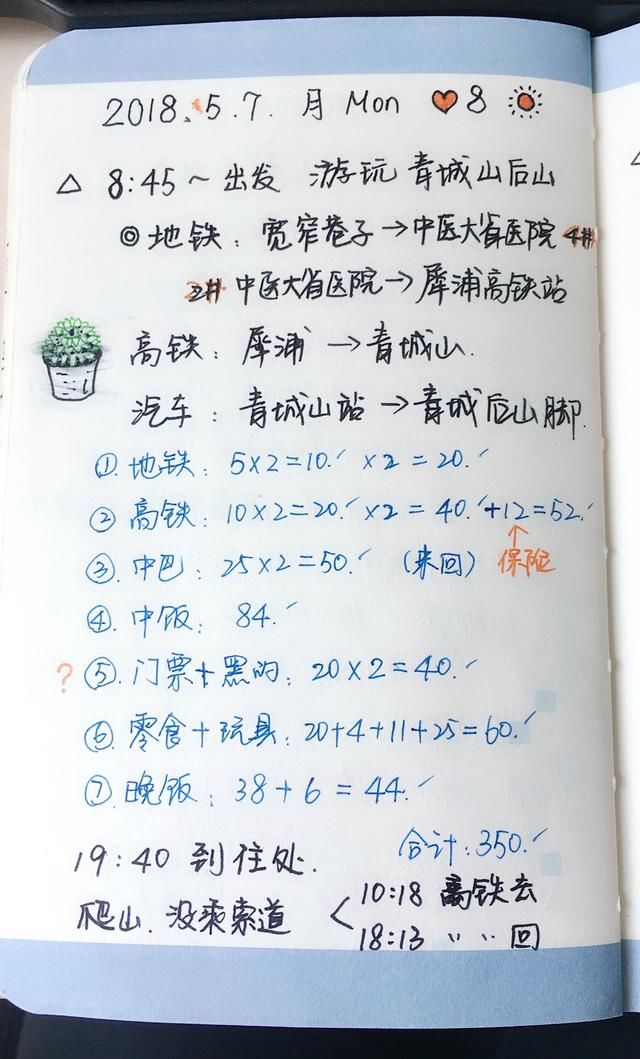 2018.5.7. 月 Mon ♥8 ☀
△ 8:45~出发 游玩 青城山后山
◎地铁：宽窄巷子→中医大省医院 4#
2# 中医大省医院→犀浦高铁站
高铁：犀浦→青城山.
汽车：青城山站→青城后山脚.
①地铁：5×2=10.✓ ×2=20.✓
②高铁：10×2=20.✓ ×2=40.✓+12=52.✓
③.中巴：25×2=50.✓ (来回) ↑保险
④.中饭：84.✓
? ⑤.门票+黑的：20×2=40.✓
⑥.零食+玩具：20+4+11+25=60.✓
⑦.晚饭：38+6=44.✓
合计：350.✓
19:40 到住处.
爬山.没乘索道 < 10:18 高铁去
18:13 〃 〃 回